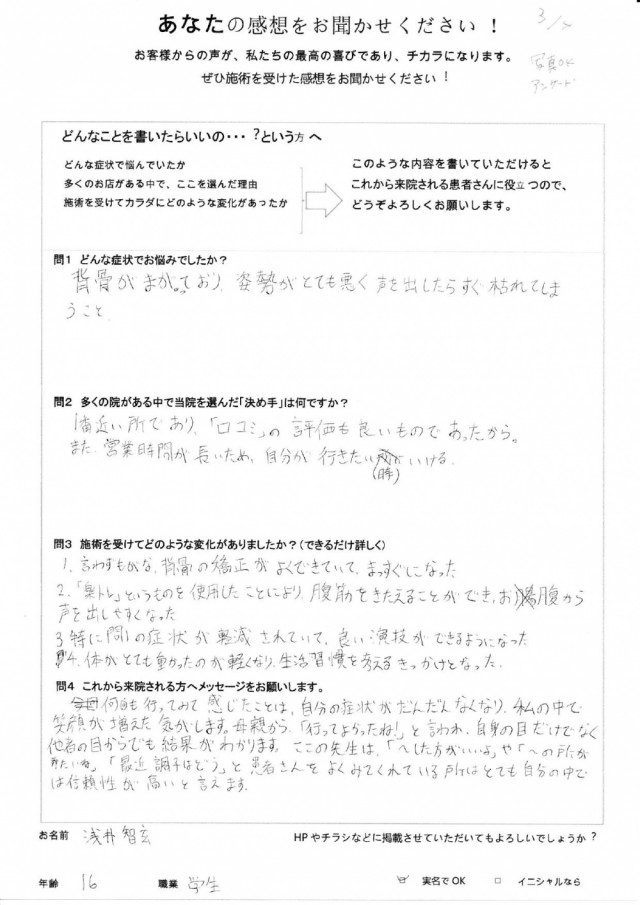 あなたの感想をお聞かせください！
お客様からの声が、私たちの最高の喜びであり、チカラになります。
ぜひ施術を受けた感想をお聞かせください！
写真OK
アンケート
どんなことを書いたらいいの・・・？という方へ
どんな症状で悩んでいたか
多くのお店がある中で、ここを選んだ理由
施術を受けてカラダにどのような変化があったか
このような内容を書いていただけると
これから来院される患者さんに役立つので、
どうぞよろしくお願いします。
問1 どんな症状でお悩みでしたか？
背骨がまがっており、姿勢がとても悪く声を出したらすぐ枯れてしま
うこと。
問2 多くの院がある中で当院を選んだ「決め手」は何ですか？
1番近い所であり、「口コミ」の評価も良いものであったから。
また、営業時間が長いため、自分が行きたい(時)いける。
問3 施術を受けてどのような変化がありましたか？（できるだけ詳しく）
1. 言わずもがな、背骨の矯正がよくできていて、まっすぐになった
2. 「楽トレ」というものを使用したことにより、腹筋をきたえることができ、お腹から
声を出しやすくなった
3 特に問1の症状が軽減されていて、良い演技ができるようになった
4. 体がとても重かったのが軽くなり、生活習慣を考えるきっかけとなった。
問4 これから来院される方へメッセージをお願いします。
何回も行ってみて感じたことは、自分の症状がだんだんなくなり、私の中で
笑顔が増えた気がします。母親から、「行ってよかったね!」と言われ、自身の目だけでなく
他者の目からでも結果がわかります。ここの先生は、「〜した方がいいよ」や「〜の所が
「最近調子はどう」と患者さんをよくみてくれている所はとても自分の中で
は信頼性が高いと言えます。
お名前 浅井智玄
HPやチラシなどに掲載させていただいてもよろしいでしょうか？
年齢 16 職業 学生 ☑ 実名でOK □ イニシャルなら